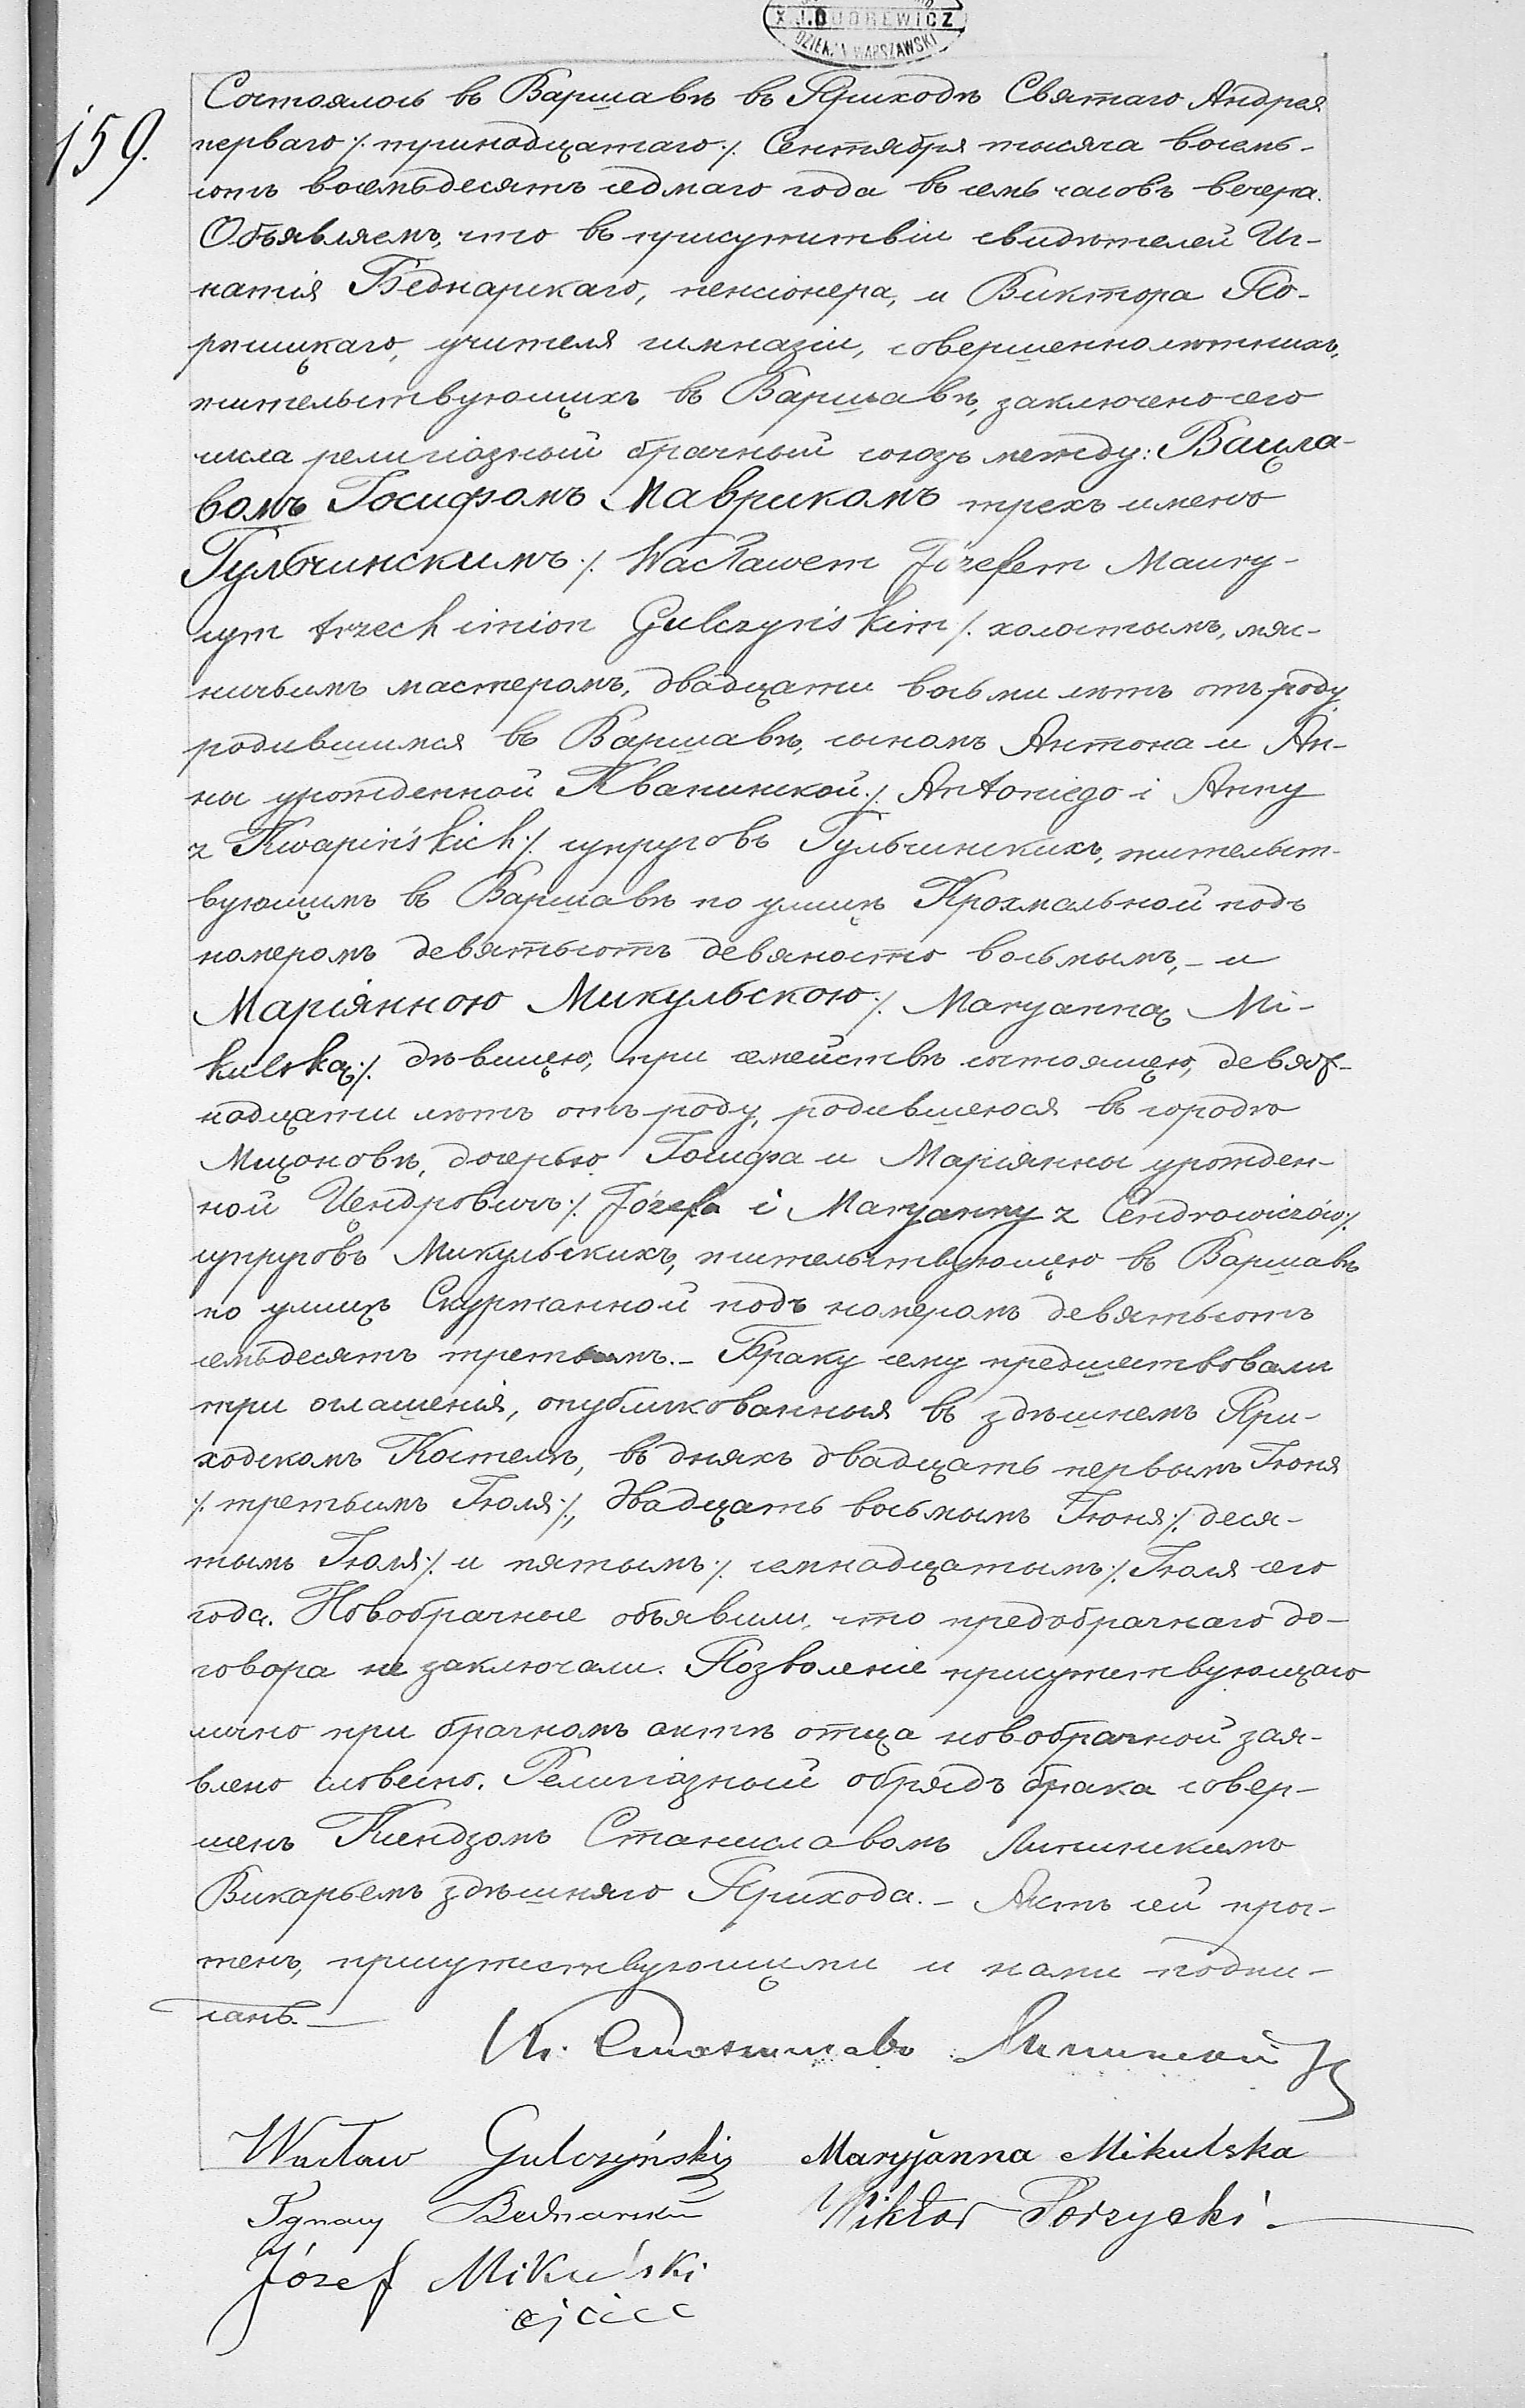 X. J. DUDREWICZ
DZIEKAN WARSZAWSKI
159.
Состоялось въ Варшавѣ въ Приходѣ Святаго Андрея
перваго /. тринадцатаго ./ Сентября тысяча восемь-
сотъ восемьдесятъ седмаго года въ семь часовъ вечера.
Объявляемъ, что въ присутствіи свидѣтелей Иг-
натія Беднарскаго, пенсіонера, и Виктора По-
ржицкаго, учителя гимназіи, совершеннолѣтнихъ,
жительствующихъ въ Варшавѣ, заключено сего
числа религіозный брачный союзъ между: Вацла-
вомъ Іосифомъ Маврикомъ трехъ именъ
Гульчинскимъ /. Wacławem Józefem Maury-
cym trzech imion Gulczyńskim /. холостымъ, мяс-
ничьимъ мастеромъ, двадцати восьми лѣтъ отъ роду
родившимся въ Варшавѣ, сыномъ Антона и Ан-
ны урожденной Квапинской /. Antoniego i Anny
z Kwapińskich /. супруговъ Гульчинскихъ, жительст-
вующимъ въ Варшавѣ по улицѣ Крохмальной подъ
номеромъ девятьсотъ девяносто восьмымъ, - и
Маріянною Микульскою /. Maryanną Mi-
kulską /. дѣвицею, при семействѣ состоящею, девят-
надцати лѣтъ отъ роду, родившеюся въ городѣ
Мщоновѣ, дочерью Іосифа и Маріянны урожден-
ной Цендровичъ /. Józefa i Maryanny z Cendrowiczów /.
супруговъ Микульскихъ, жительствующею въ Варшавѣ
по улицѣ Скуржанной подъ номеромъ девятьсотъ
семьдесятъ третьимъ. - Браку сему предшествовали
три оглашенія, опубликованныя въ здѣшнемъ При-
ходскомъ Костелѣ, въ дняхъ двадцать первымъ Іюня
/. третьимъ Іюля /., двадцать восьмымъ Іюня /. деся-
тымъ Іюля /. и пятымъ /. семнадцатымъ /. Іюля сего
года. Новобрачные объявили, что предбрачнаго до-
говора не заключали. Позволеніе присутствующаго
лично при брачномъ актѣ отца новобрачной зая-
влено словесно. Религіозный обрядъ брака совер-
шенъ Ксендзомъ Станиславомъ Липинскимъ
Викарьемъ здѣшняго Прихода. - Актъ сей проч-
тенъ, присутствующими и нами подпи-
санъ. —
Кс. Станиславъ
Wacław Gulczyński Maryjanna Mikulska
Ignacy Bednarski Wiktor Porzycki
Józef Mikulski
ojciec